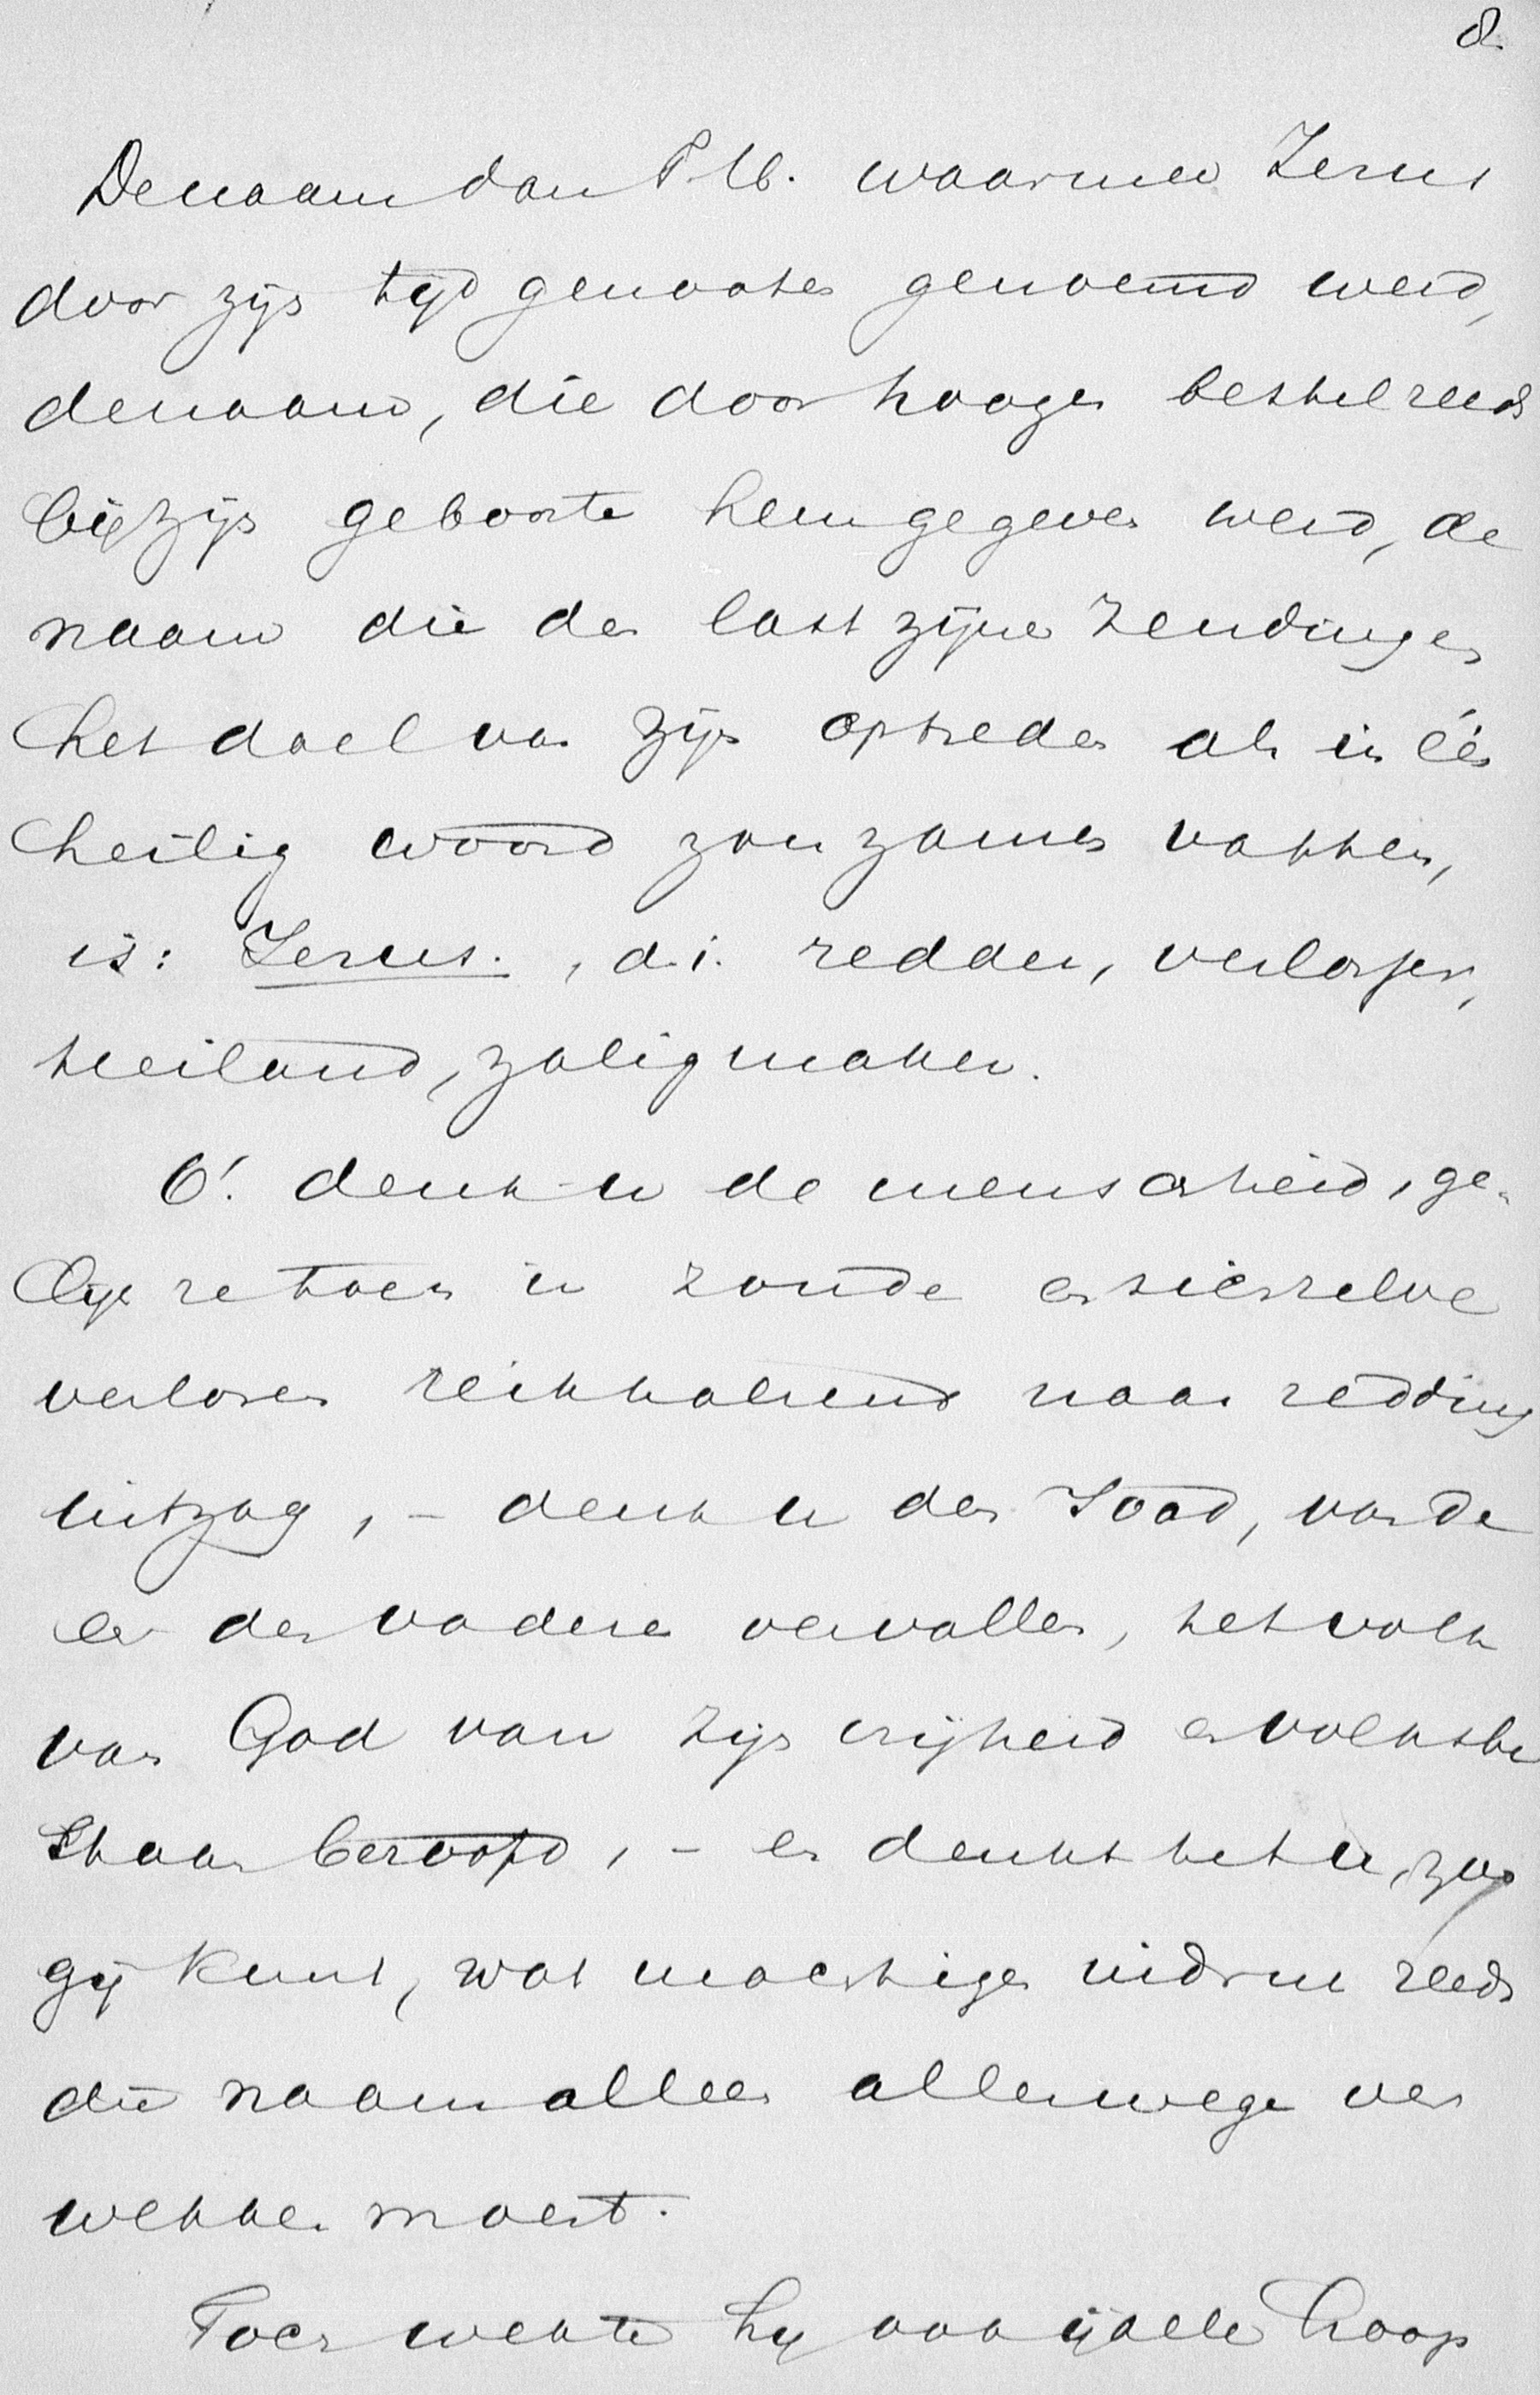 8.
De naam dan T. M. waarmee Jezus
door zijn tijdgenooten genoemd werd,
de naam, die door hooger bestel reeds
bij zijn geboorte hem gegeven werd, de
naam die den last zijner zending en
het doel van zijn optreden als in één
heilig woord zou zamen vatten,
is: Jezus., d.i. redder, verlosser,
heiland, zaligmaker.
O! denk u de menschheid, ge-
lijk ze toen in zonde en zich zelve
verloren reikhalzend naar redding
uitzag, - denk u den Jood, van de
eer der vaderen vervallen, het volk
van God van zijn vrijheid en volksbe
staan beroofd, - en denkt het u, zoo
gij kunt, wat machtigen indruk reeds
die naam alleen allerwege ver
wekken moest.
Toen wekte hij ook ijdele hoop